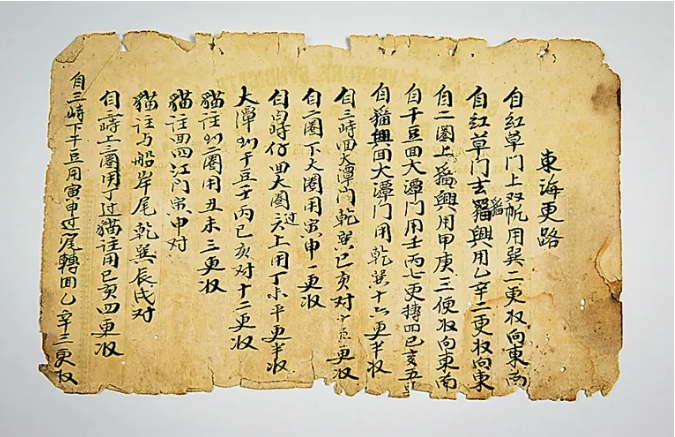 東海更路
自紅草门上双帆用巽二更收向東南
自紅草门去猫興用乙辛二更收向東
自二圈上猫興用甲庚三便收向東南
自干豆回大潭门用壬丙七更轉四巳亥五
自猫興回大潭门用乾巽十六更半收
自三峙回大潭门乾巽巳亥对十五更收
自二圈下大圈用寅申一更收
自白峙仔回大圈过上用丁未平更半收
大潭到干豆壬丙巳亥对十二更收
猫注到二圈用丑未三更收
猫注回四江门寅申对
猫注与船岸尾乾巽辰戌对
自三峙上三圈用丁过猫注用巳亥四更收
自三峙下干豆用寅申过尾轉回乙辛三更收